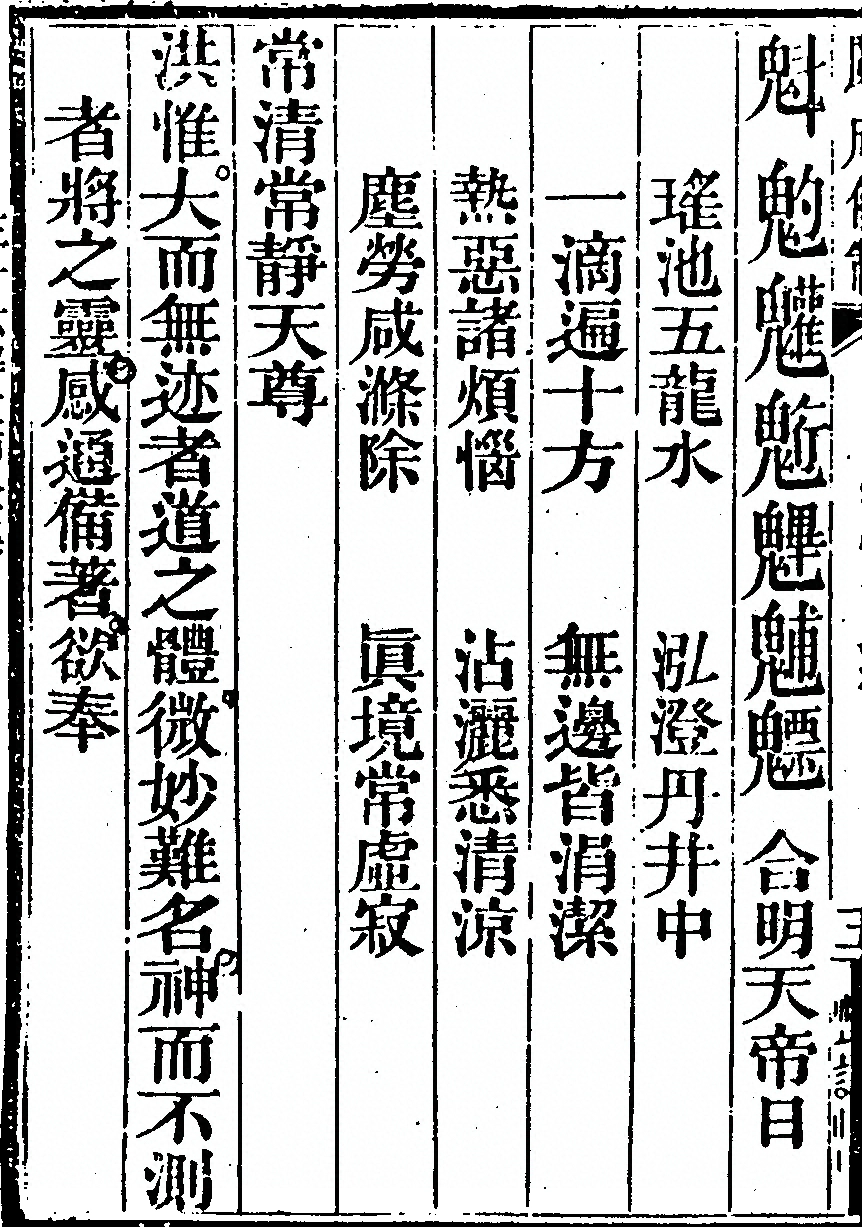 魁𩲃𩵄䰢魓𩳐魒　合明天帝日
瑤池五龍水　泓澄丹井中
一滴遍十方　無邊皆涓潔
熱惡諸煩惱　沾灑悉清涼
塵勞咸滌除　眞境常虛寂
常清常靜天尊
洪惟大而無迹者道之體微妙難名神而不測
者將之靈感通備著欲奉